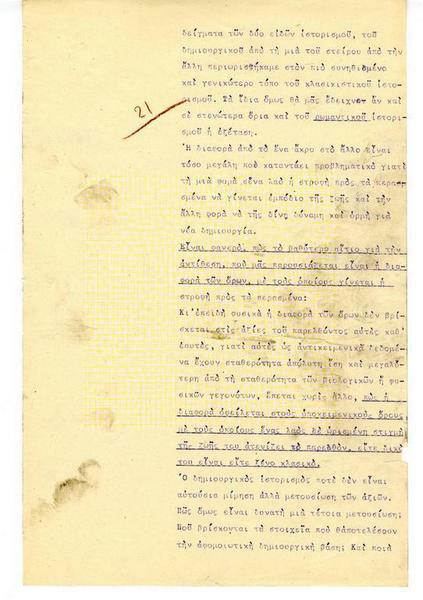 δείγματα τῶν δύο εἰδῶν ἱστορισμοῦ, τοῦ
δημιουργικοῦ ἀπό τή μιά τοῦ στείρου ἀπό τήν
ἄλλη περιωρισθήκαμε στόν πιό συνηθισμένο
καί γενικώτερο τύπο τοῦ κλασικιστικοῦ ἱστο-
ρισμοῦ. Τά ἴδια ὅμως θά μᾶς ἔδειχνεν ἄν καί
21
σέ στενώτερα ὅρια καί τοῦ ρωμαντικοῦ ἱστορισ-
μοῦ ἡ ἐξέταση.
Ἡ διαφορά ἀπό τό ἕνα ἄκρο στό ἄλλο εἶναι
τόσο μεγάλη πού καταντάει προβληματικό γιατί
τή μιά φορά σ'ἕνα λαό ἡ στροφή πρός τά περασ-
μένα νά γίνεται ἐμπόδιο τῆς ζωῆς καί τήν
ἄλλη φορά νά τῆς δίνῃ δύναμη καί ὁρμή γιά
νέα δημιουργία.
Εἶναι φανερό, πώς τό βαθύτερο αἴτιο γιά τήν
ἀντίθεση, πού μᾶς παρουσιάζεται εἶναι ἡ δια-
φορά τῶν ὅρων, μέ τούς ὁποίους γίνεται ἡ
στροφή πρός τά περασμένα:
Κι'ἐπειδή φυσικά ἡ διαφορά τῶν ὅρων δέν βρί-
σκεται στίς ἀξίες τοῦ παρελθόντος αὐτές καθ'
ἑαυτές, γιατί αὐτές ὡς ἀντικειμενικά δεδομέ-
να ἔχουν σταθερότητα ἀπόλυτη ἴση καί μεγαλύ-
τερη ἀπό τή σταθερότητα τῶν βιολογικῶν ἤ φυ-
σικῶν γεγονότων, ἕπεται χωρίς ἄλλο, πώς ἡ
διαφορά ὀφείλεται στούς ὑποκειμενικούς ὅρους
μέ τούς ὁποίους ἕνας λαός σέ ὡρισμένη στιγμή
τῆς ζωῆς του ἀτενίζει τό παρελθόν, εἴτε δικό
του εἶναι εἴτε ξένο κλασικό.
Ὁ δημιουργικός ἱστορισμός ποτέ δέν εἶναι
αὐτούσια μίμηση ἀλλά μετουσίωση τῶν ἀξιῶν.
Πῶς ὅμως εἶναι δυνατή μιά τέτοια μετουσίωση;
Ποῦ βρίσκονται τά στοιχεῖα πού θἀποτελέσουν
τήν ἀφομοιωτική δημιουργική βάση; Καί ποιά